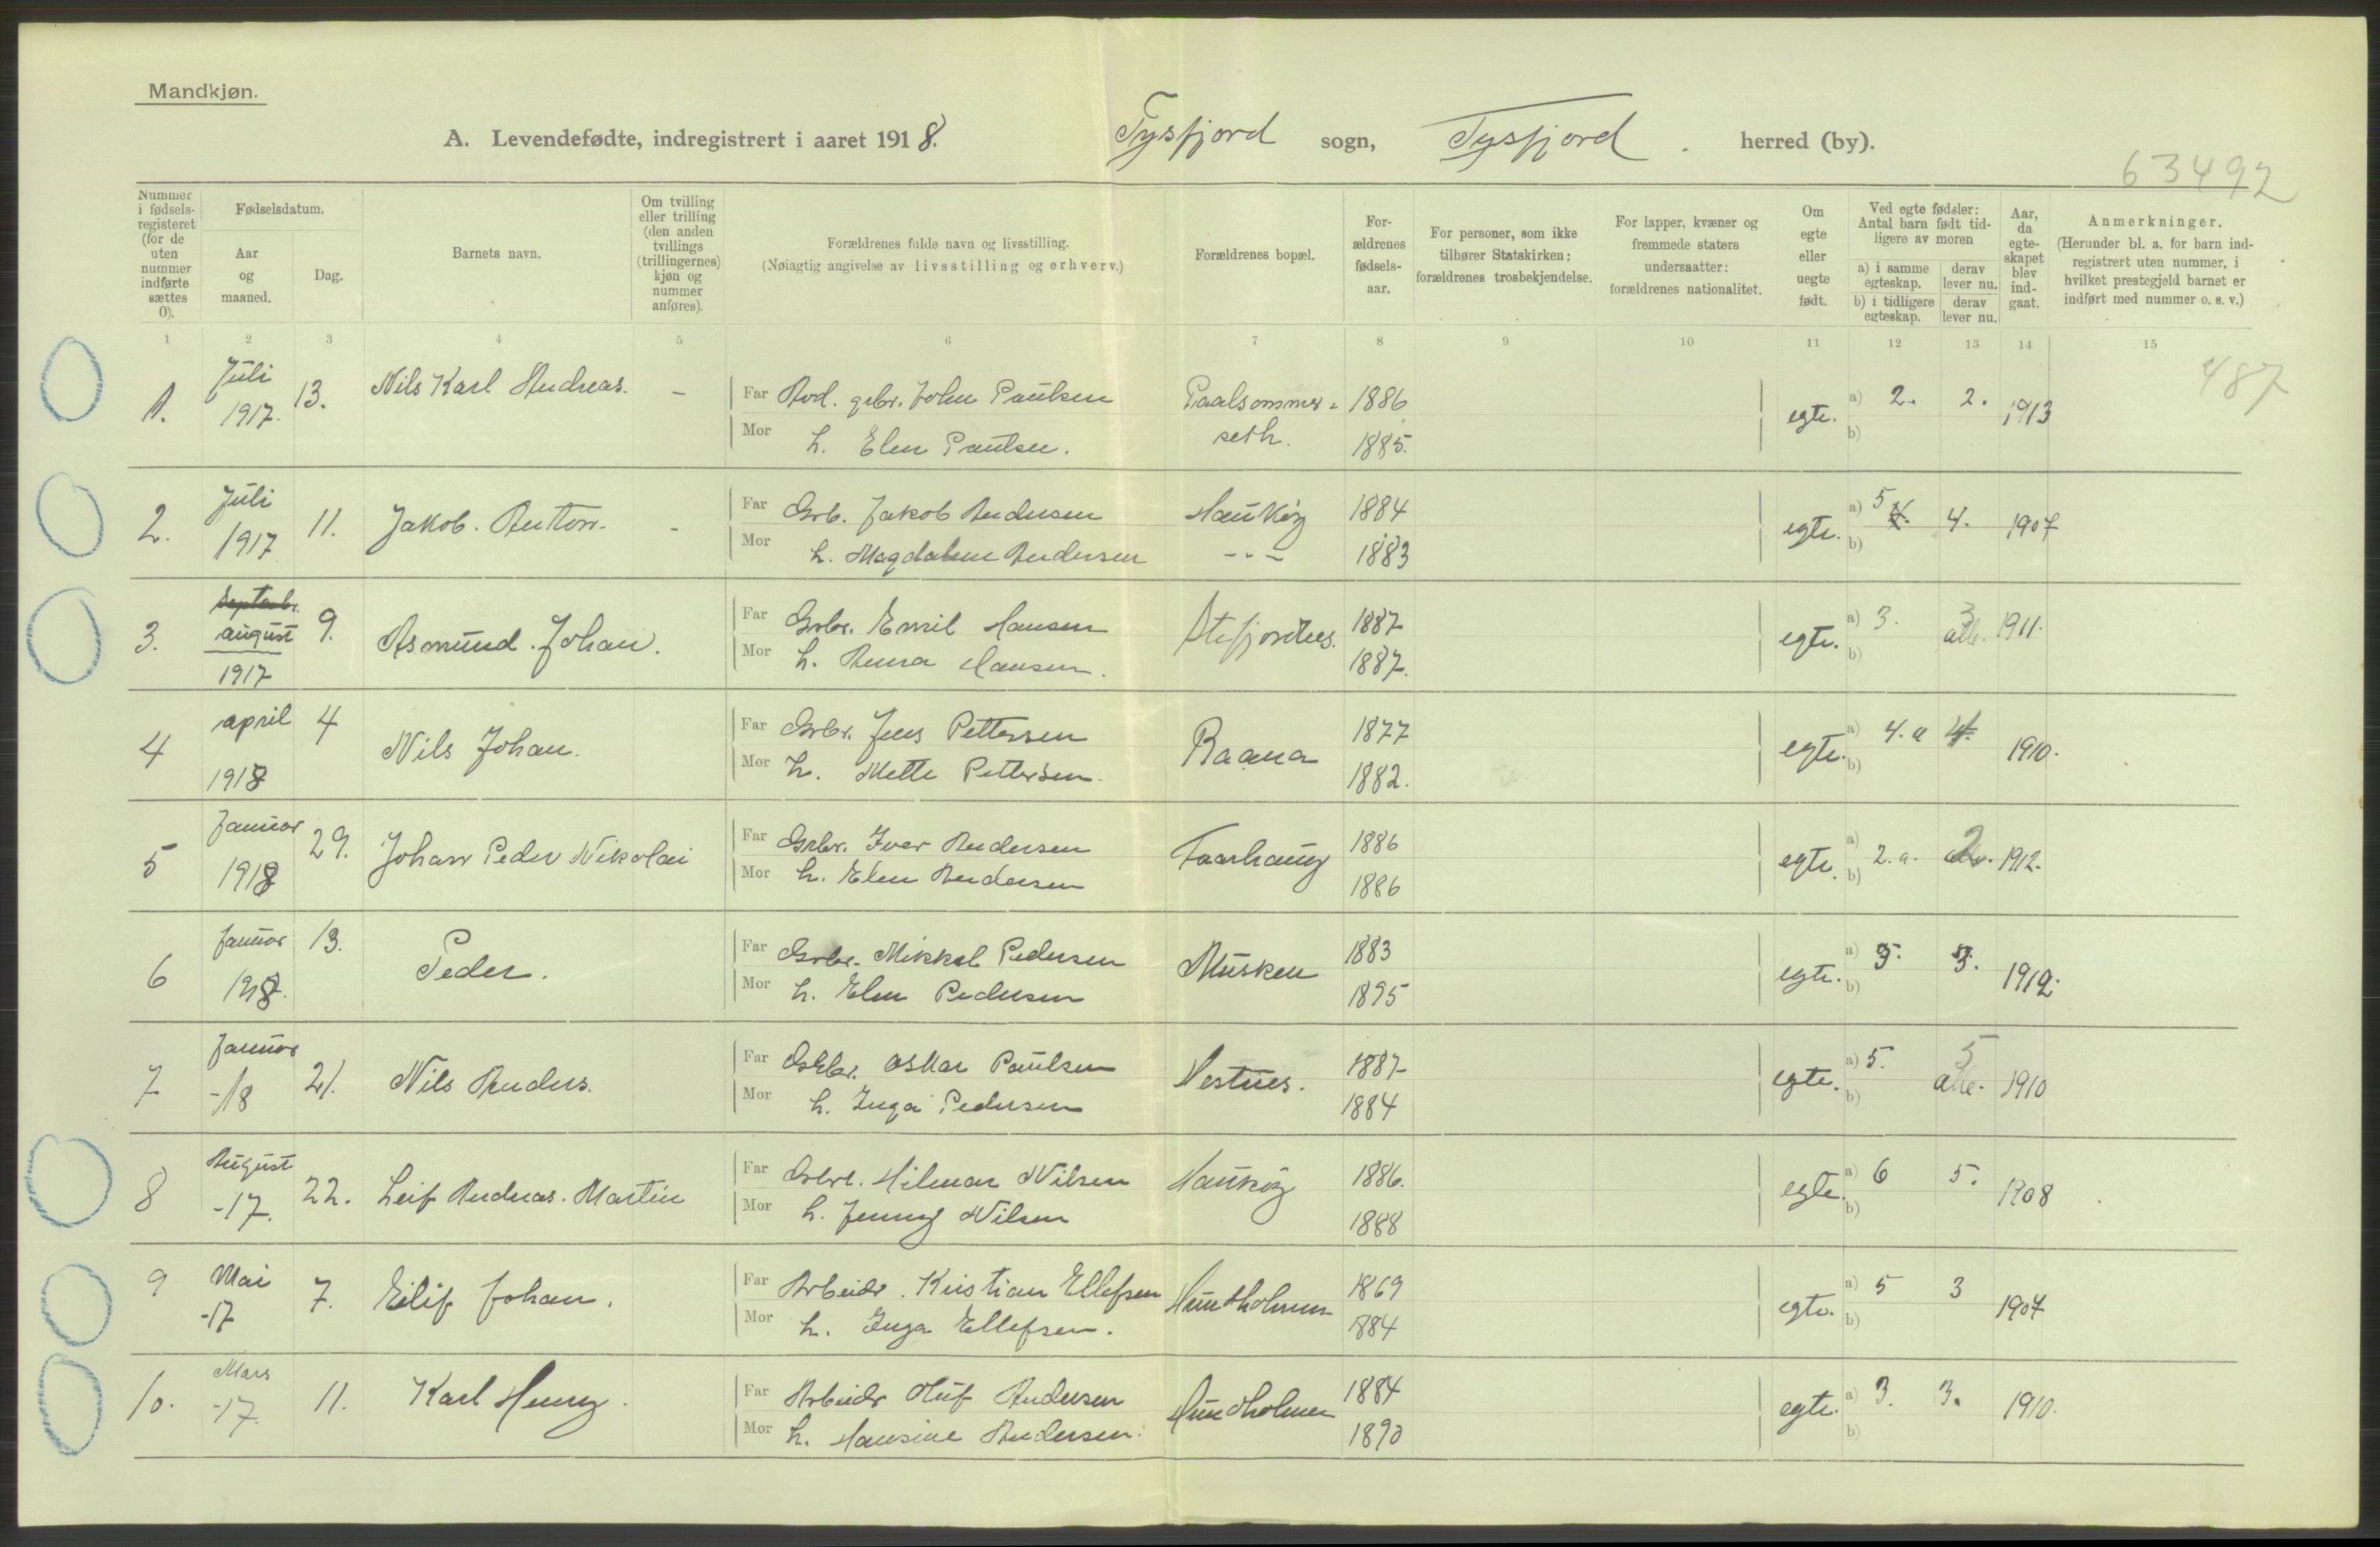 Mandkjøn.
A. Levendefødte, indregistrert i aaret 1918. Tysfjord sogn, Tysfjord herred (by).
63492
Nummer i fødselsregisteret (for de uten nummer indførte sættes 0).
Fødselsdatum.
Aar og maaned.
Dag.
Barnets navn.
Om tvilling eller trilling (den anden tvillings (trillingernes) kjøn og nummer anføres).
Forældrenes fulde navn og livsstilling.
(Nøiagtig angivelse av livsstilling og erhverv.)
Forældrenes bopæl.
Forældrenes fødselsaar.
For personer, som ikke tilhører Statskirken: forældrenes trosbekjendelse.
For lapper, kvæner og fremmede staters undersaatter: forældrenes nationalitet.
Om egte eller uegte født.
Ved egte fødsler: Antal barn født tidligere av moren
a) i samme egteskap. derav lever nu.
b) i tidligere egteskap. derav lever nu.
Aar, da egteskapet blev indgaat.
Anmerkninger.
(Herunder bl. a. for barn indregistrert uten nummer, i hvilket prestegjeld barnet er indført med nummer o. s. v.)
1 2 3 4 5 6 7 8 9 10 11 12 13 14 15
487
1. Juli 1917. 13. Nils Karl Andreas. -
Far Rod. grbr. John Paulsen 1886 egte. a) 2. 2. 1913
Mor h. Elen Paulsen. 1885. b)
2. Juli 1917 11. Jakob. Anton. -
Far Grb. Jakob Andersen Haukøy 1884 egte. a) 5 4. 4. 1907
Mor h. Magdalene Andersen - - - 1883 b)
3. Septembr. august 1917 9. Asmund. Johan.
Far Grbr. Emil Hansen Stefjordnes. 1887 egte. a) 3. 3 alle. 1911.
Mor h. Anna Hansen. 1887. b)
4 april 1918 4 Nils Johan.
Far Grbr. Jens Pettersen Raana 1877 egte. a) 4. a 4. 1910.
Mor h. Mette Pettersen. 1882. b)
5 Januar 1918 29. Johan Peder Nikolai
Far Grbr. Iver Andersen Taarhaug 1886 egte. a) 2. a. 2 1912.
Mor h. Elen Andersen 1886 b)
6 Januar 1918. 13. Peder.
Far Grbr. Mikkel Pedersen Musken 1883 egte. a) 3. 3. 1912.
Mor h. Elen Pedersen 1895 b)
7 Januar -18 21. Nils Anders.
Far Grbr. Oskar Paulsen Vestnes. 1887 egte. a) 5. 5 alle. 1910
Mor h. Inga Pedersen 1884 b)
8 August -17. 22. Leif Andreas. Martin
Far Grbr. Hilmar Nilsen Haukøy 1886. egte. a) 6 5. 1908
Mor h. Jenny Nilsen 1888 b)
9 Mai -17 7. Eilif Johan.
Far Arbeidr. Kristian Ellefsen Hundholmen 1869 egte. a) 5 3 1907
Mor h. Inga Ellefsen. 1884 b)
10. Mars -17. 11. Karl Henry.
Far Arbeidr Oluf Andersen Hundholmen 1884 egte. a) 3. 3. 1910.
Mor h. Hansine Andersen. 1890 b)